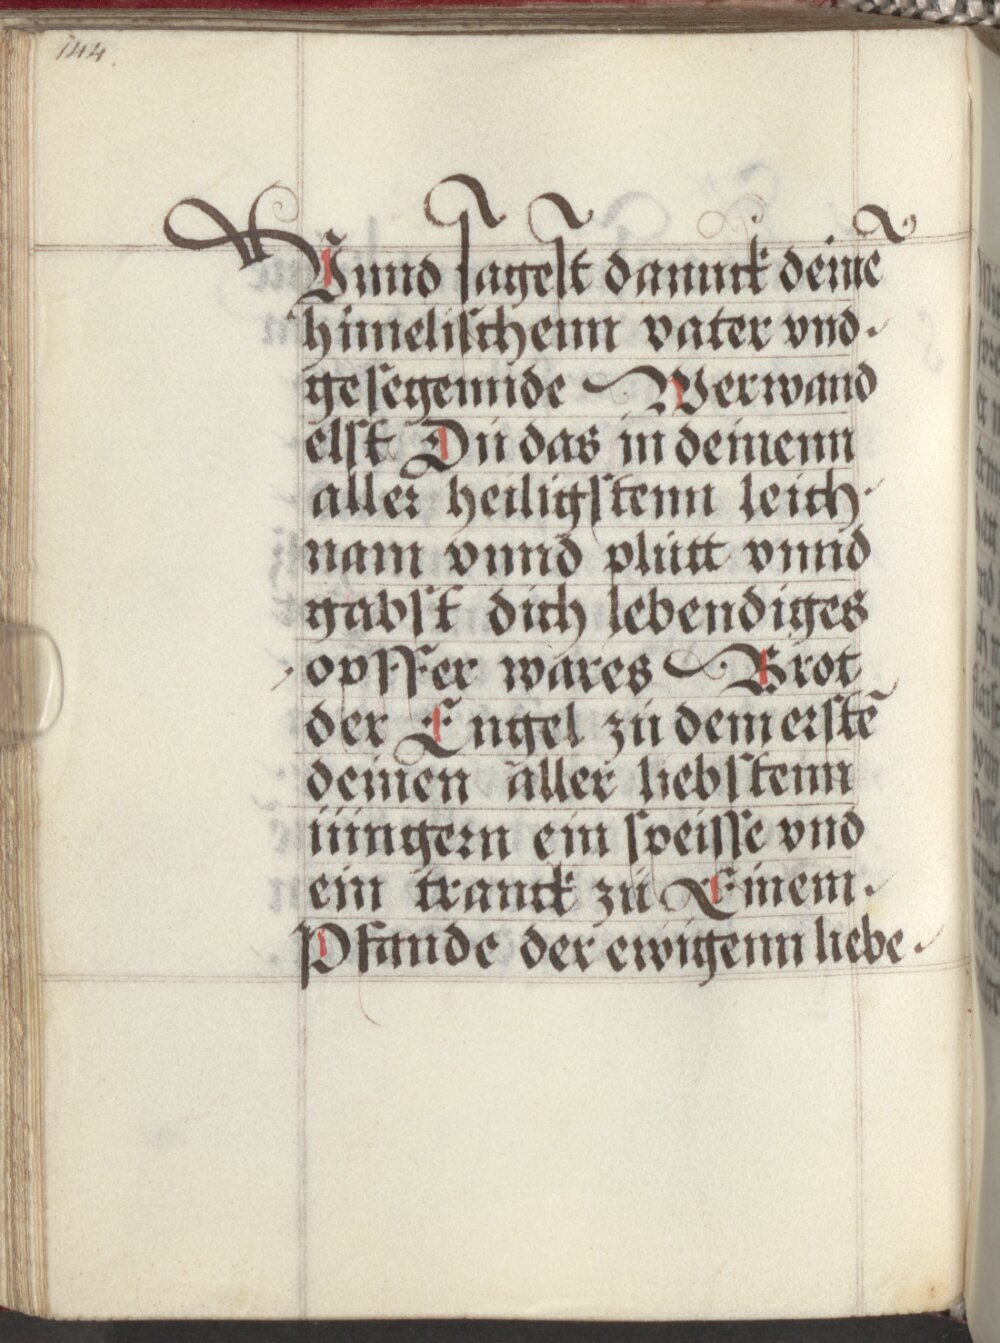 144.
Vnnd sagest dannck deinē
himelischenn vater vnd
gesegennde Werwand
elst Dŭ das in deinenn
aller heiligstenn leich
nam vnnd plŭtt vnnd
gabst dich lebendiges
opffer wares Brot
der Engel zŭ dem erstē
deinen aller liebstenn
iŭngern ein speisse vnd
ein tranck zŭ Einem
Pfande der ewigenn liebe